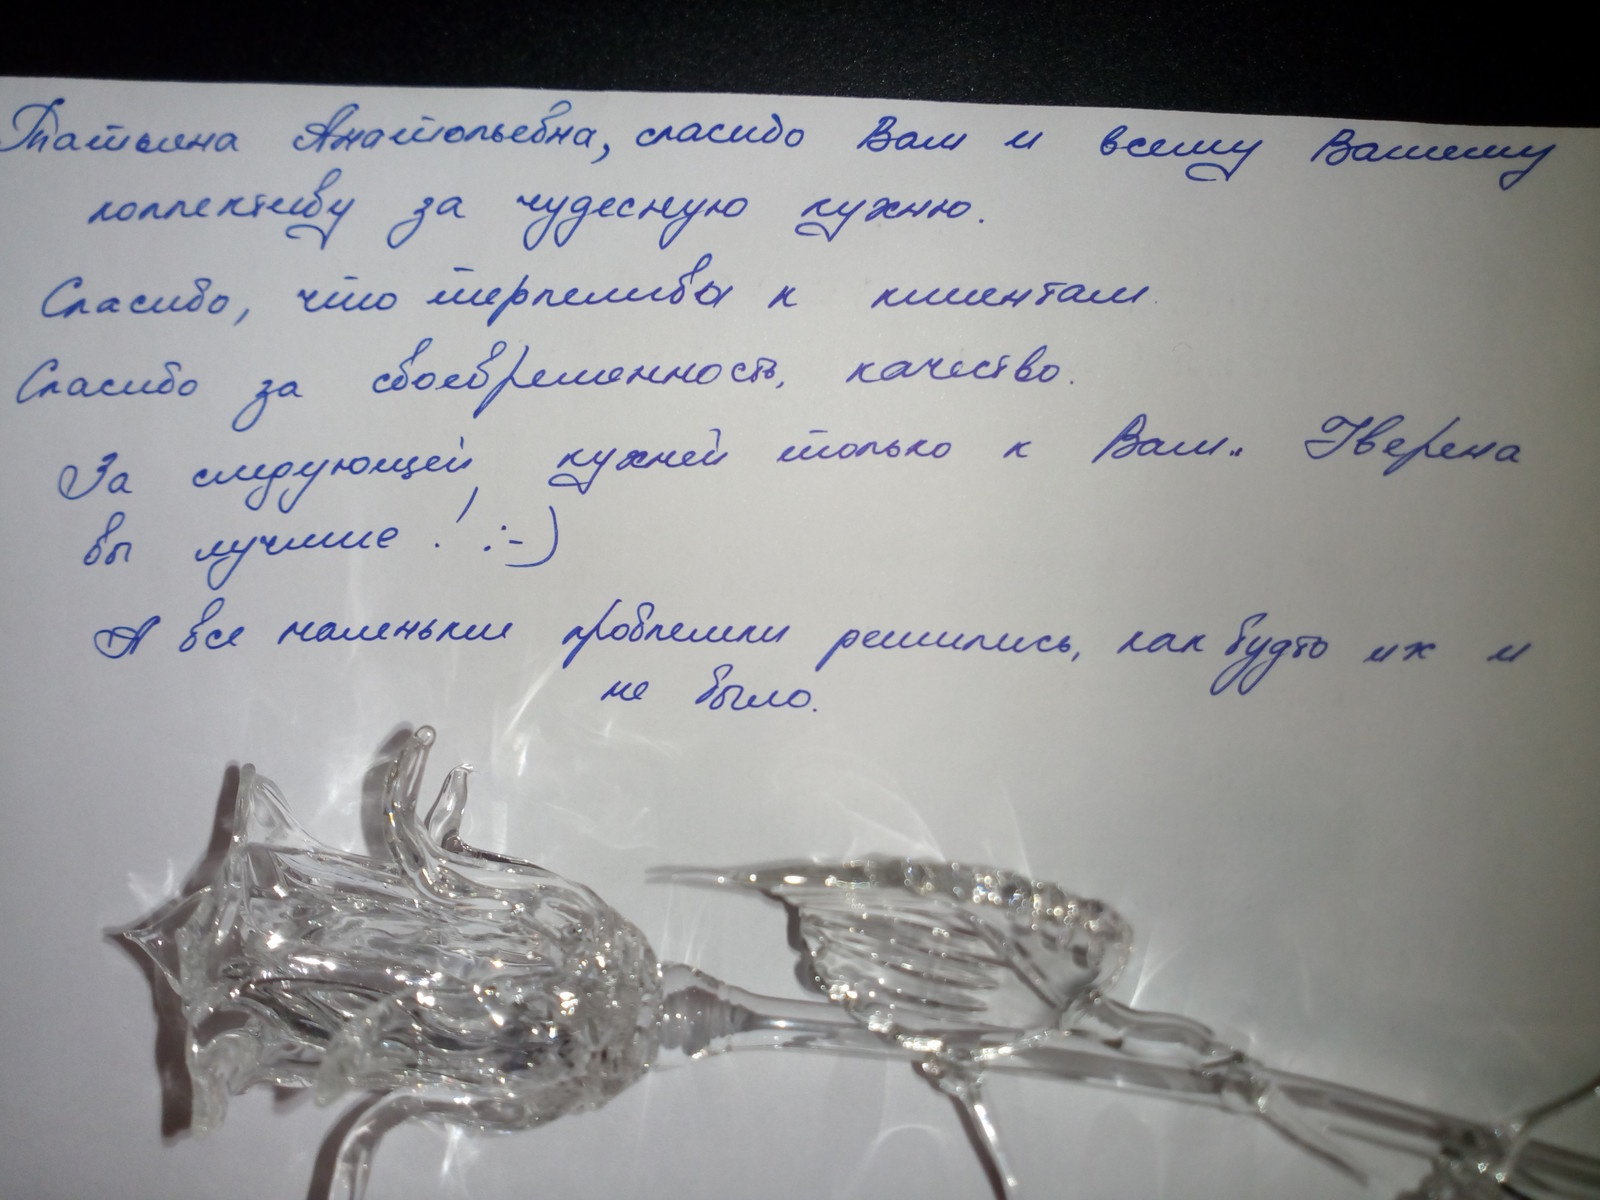 Татьяна Анатольевна, спасибо Вам и всему Вашему
коллективу за чудесную кухню.
Спасибо, что терпеливы к клиентам.
Спасибо за своевременность, качество.
За следующей кухней только к Вам.. Уверена
вы лучшие! :-)
А все маленькие проблемки решились, как будто их и
не было.